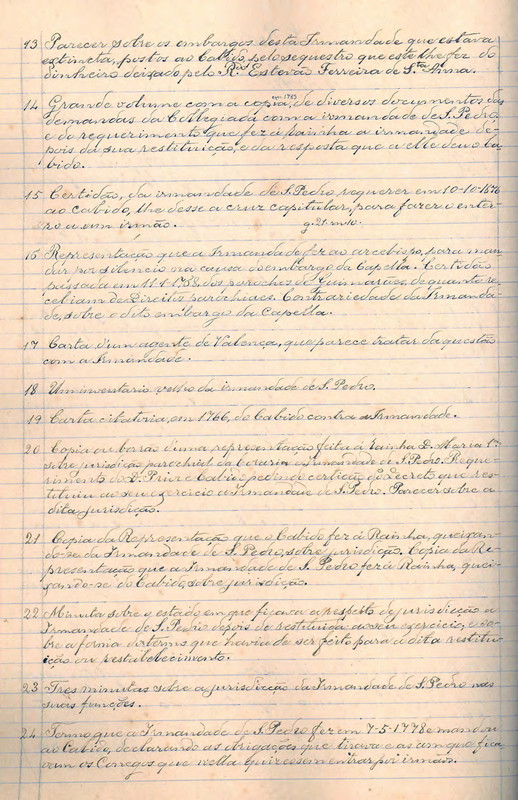 13 Parecer sobre os embargos desta Irmandade que estava
extincta, postos ao Cabido, pelo sequestro que este lhe fez do
dinheiro deixado pelo Rdo Estevão Ferreira de Sta Anna.
em 1783
14 Grande volume com a copia, de diversos documentos das
demandas da Collegiada com a irmandade de S. Pedro,
e do requerimento que fez á rainha a irmandade de-
pois da sua restituição, e da resposta que a elle deu o Ca-
bido.
15 Certidão, da irmandade de S. Pedro requerer em 10-10-1676
ao cabido, lhe desse a cruz capitular, para fazer o enter-
ro a um irmão.
16 Representação que a Irmandade fez ao arcebispo, para man-
dar por silencio na causa do embargo da Capella. Certidão
passada em 11-1-1755, dos parochos de Guimarães, de quanto re-
cebiam de Direitos parochiaes. Contrariedade da Irmanda-
de, sobre o dito embargo da Capella.
17 Carta d'um agente de Valença, que parece tratar da questão
com a Irmandade.
18 Um inventario velho da irmandade de S. Pedro.
19 Carta citatoria, em 1766, do Cabido contra a Irmandade.
20 Copia ou borrão d'uma representação feita á rainha D. Maria 1ª
sobre jurisdição parochial da Irmandade de S. Pedro. Reque-
rimento do D. Prior e Cabido pedindo certidão do Decreto que res-
tituiu ao seu exercicio a Irmandade de S. Pedro. Parecer sobre a
dita jurisdição.
21 Copia da Representação que o Cabido fez á Rainha, queixan-
do-se da Irmandade de S. Pedro, sobre jurisdição. Copia da Re-
presentação que a Irmandade de S. Pedro fez á Rainha, quei-
xando-se do Cabido, sobre jurisdição.
22 Minuta sobre o estado em que ficava a respeito de jurisdicção a
Irmandade de S. Pedro depois de restituida ao seu exercicio, e so-
bre a forma do termo que havia de ser feito para a dita restitu-
ição ou restabelecimento.
23 Tres minutas sobre a jurisdicção da Irmandade de S. Pedro nas
suas funções.
24 Termo que a Irmandade de S. Pedro fez em 7-5-1778 e mandou
ao Cabido, declarando as obrigações que tirava e as com que fica-
vam os Conegos que n'ella quizessem entrar por irmãos.